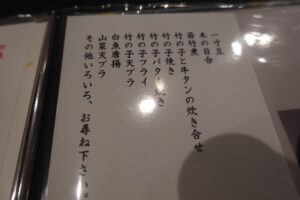 一寸豆
木の芽合
若竹煮
竹の子と牛タンの炊き合せ
竹の子焼き
竹の子バター焼き
竹の子フライ
竹の子天プラ
白魚唐揚
山菜天プラ
その他いろいろ、お尋ね下さい。